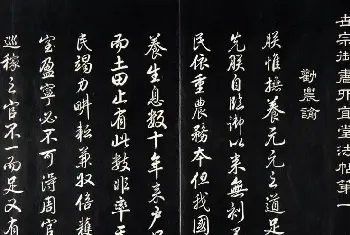 世宗御書朗吟堂法帖第一
勸農諭
朕惟撫養元元之道足
先朕自臨御以來無刻不
民依重農務本但我國
養生息數十年來戶口
而土田止有此數非率天
民竭力畊耘兼收倍穫
室盈寧必不可得周官
巡稼之官不一而足又有